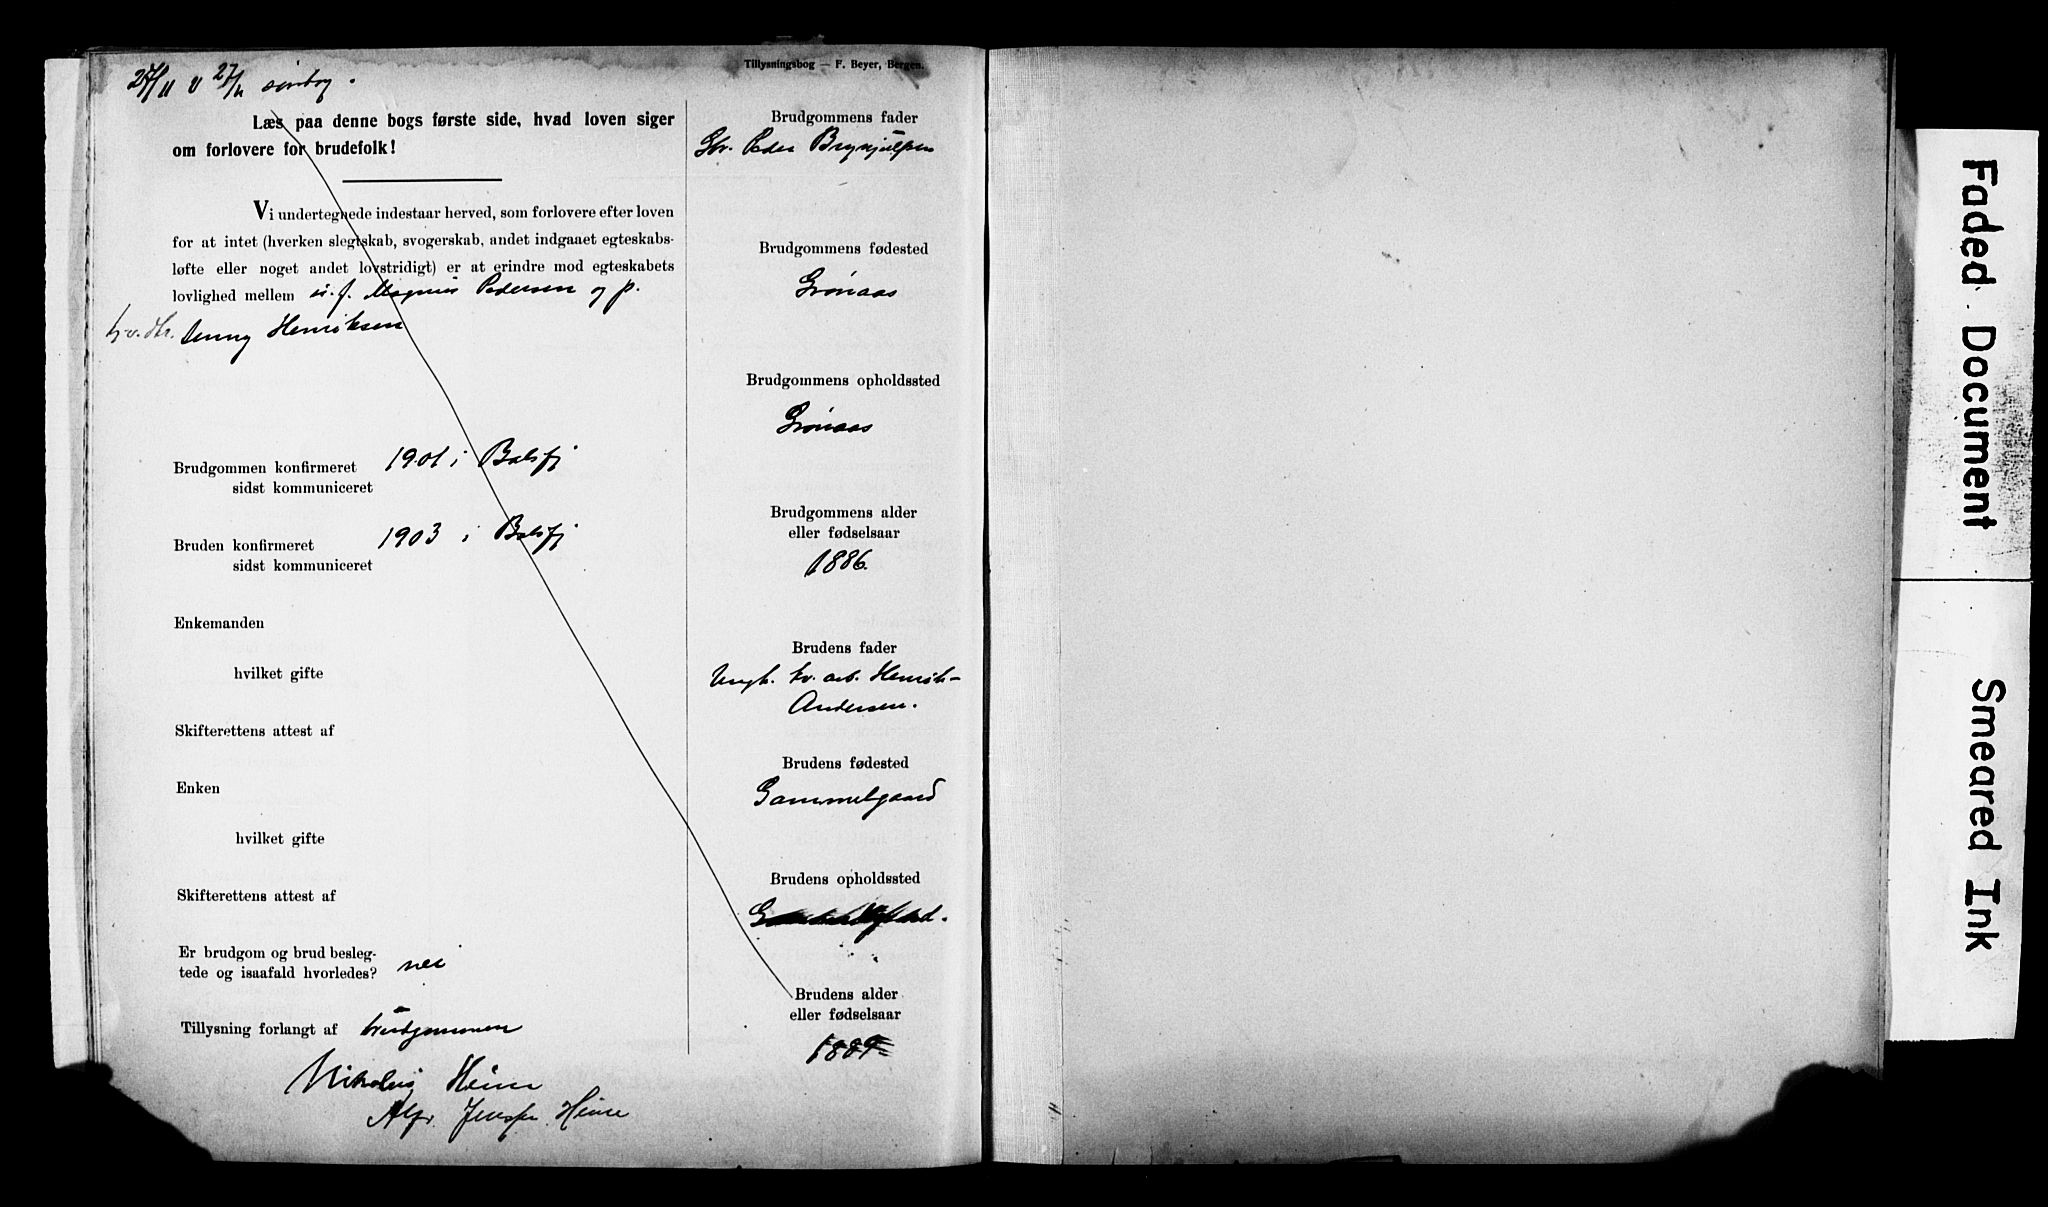 Tillysningsbog — F. Beyer, Bergen.
27/11 27/11
Læs paa denne bogs første side, hvad loven siger
om forlovere for brudefolk!
Vi undertegnede indestaar herved, som forlovere efter loven
for at intet (hverken slegtskab, svogerskab, andet indgaaet egteskabs-
løfte eller noget andet lovstridigt) er at erindre mod egteskabets
lovlighed mellem u. f. Magnus Pedersen og p.
Jenny Henriksen
Brudgommen konfirmeret 1901 i Balsfj
sidst kommuniceret
Bruden konfirmeret 1903 i Balsfj
sidst kommuniceret
Enkemanden
hvilket gifte
Skifterettens attest af
Enken
hvilket gifte
Skifterettens attest af
Er brudgom og brud besleg-
tede og isaafald hvorledes? nei
Tillysning forlangt af brudgommen
Nikolai Heim
Alfr. Heim
Brudgommens fader
Gbr. Peder Brynjulfsen
Brudgommens fødested
Grønaas
Brudgommens opholdssted
Grønaas
Brudgommens alder
eller fødselsaar
1886.
Brudens fader
Henrik
Andersen.
Brudens fødested
Gammelgaard
Brudens opholdssted
Brudens alder
eller fødselsaar
1889
Faded Document
Smeared Ink